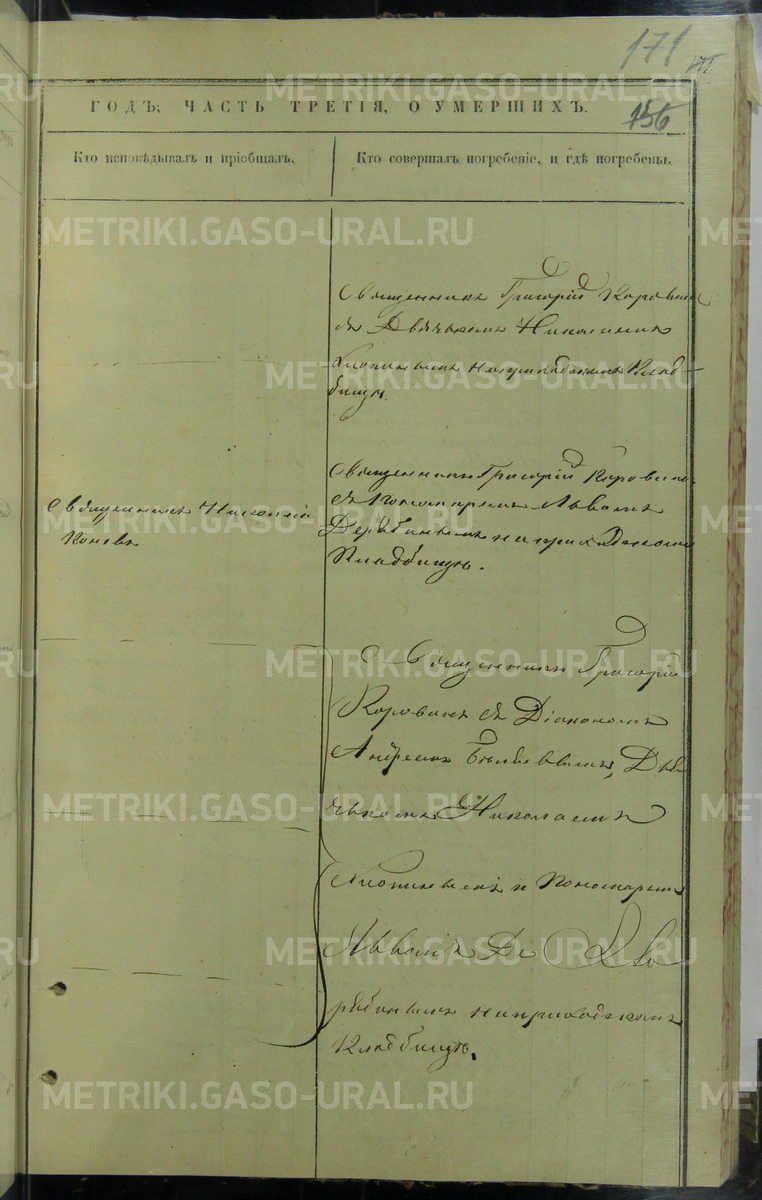 171
156
ГОДЪ; ЧАСТЬ ТРЕТІЯ, О УМЕРШИХЪ.
Кто исповѣдывалъ и пріобщалъ.
Кто совершалъ погребеніе, и гдѣ погребены.
Священникъ Григорій Коровинъ
съ Дьячкомъ Николаемъ
на приходскомъ Клад-
бищѣ.
Священникъ
Коневъ
Священникъ Григорій Коровинъ
съ Пономаремъ Львомъ
Дерябинымъ на приходскомъ
Кладбищѣ.
Священникъ Григорій
Коровинъ съ Діакономъ
Андреемъ Дья
чкомъ Николаемъ
и Пономаремъ
Львомъ Де
рябинымъ на приходскомъ
Кладбищѣ.
METRIKI.GASO-URAL.RU